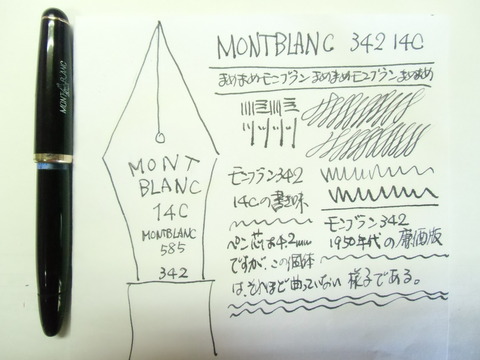 MONTBLANC
MONTBLANC 342 14C
まめまめモンブラン まめまめモンブラン まめまめ
MONT
BLANC
14C
MONTBLANC
585
342
モンブラン342
14Cの書き味
ペン芯は4.2mm
ですが、この個体
は、それほど曲っていない 様子である。
モンブラン342
1950年代の廉価版